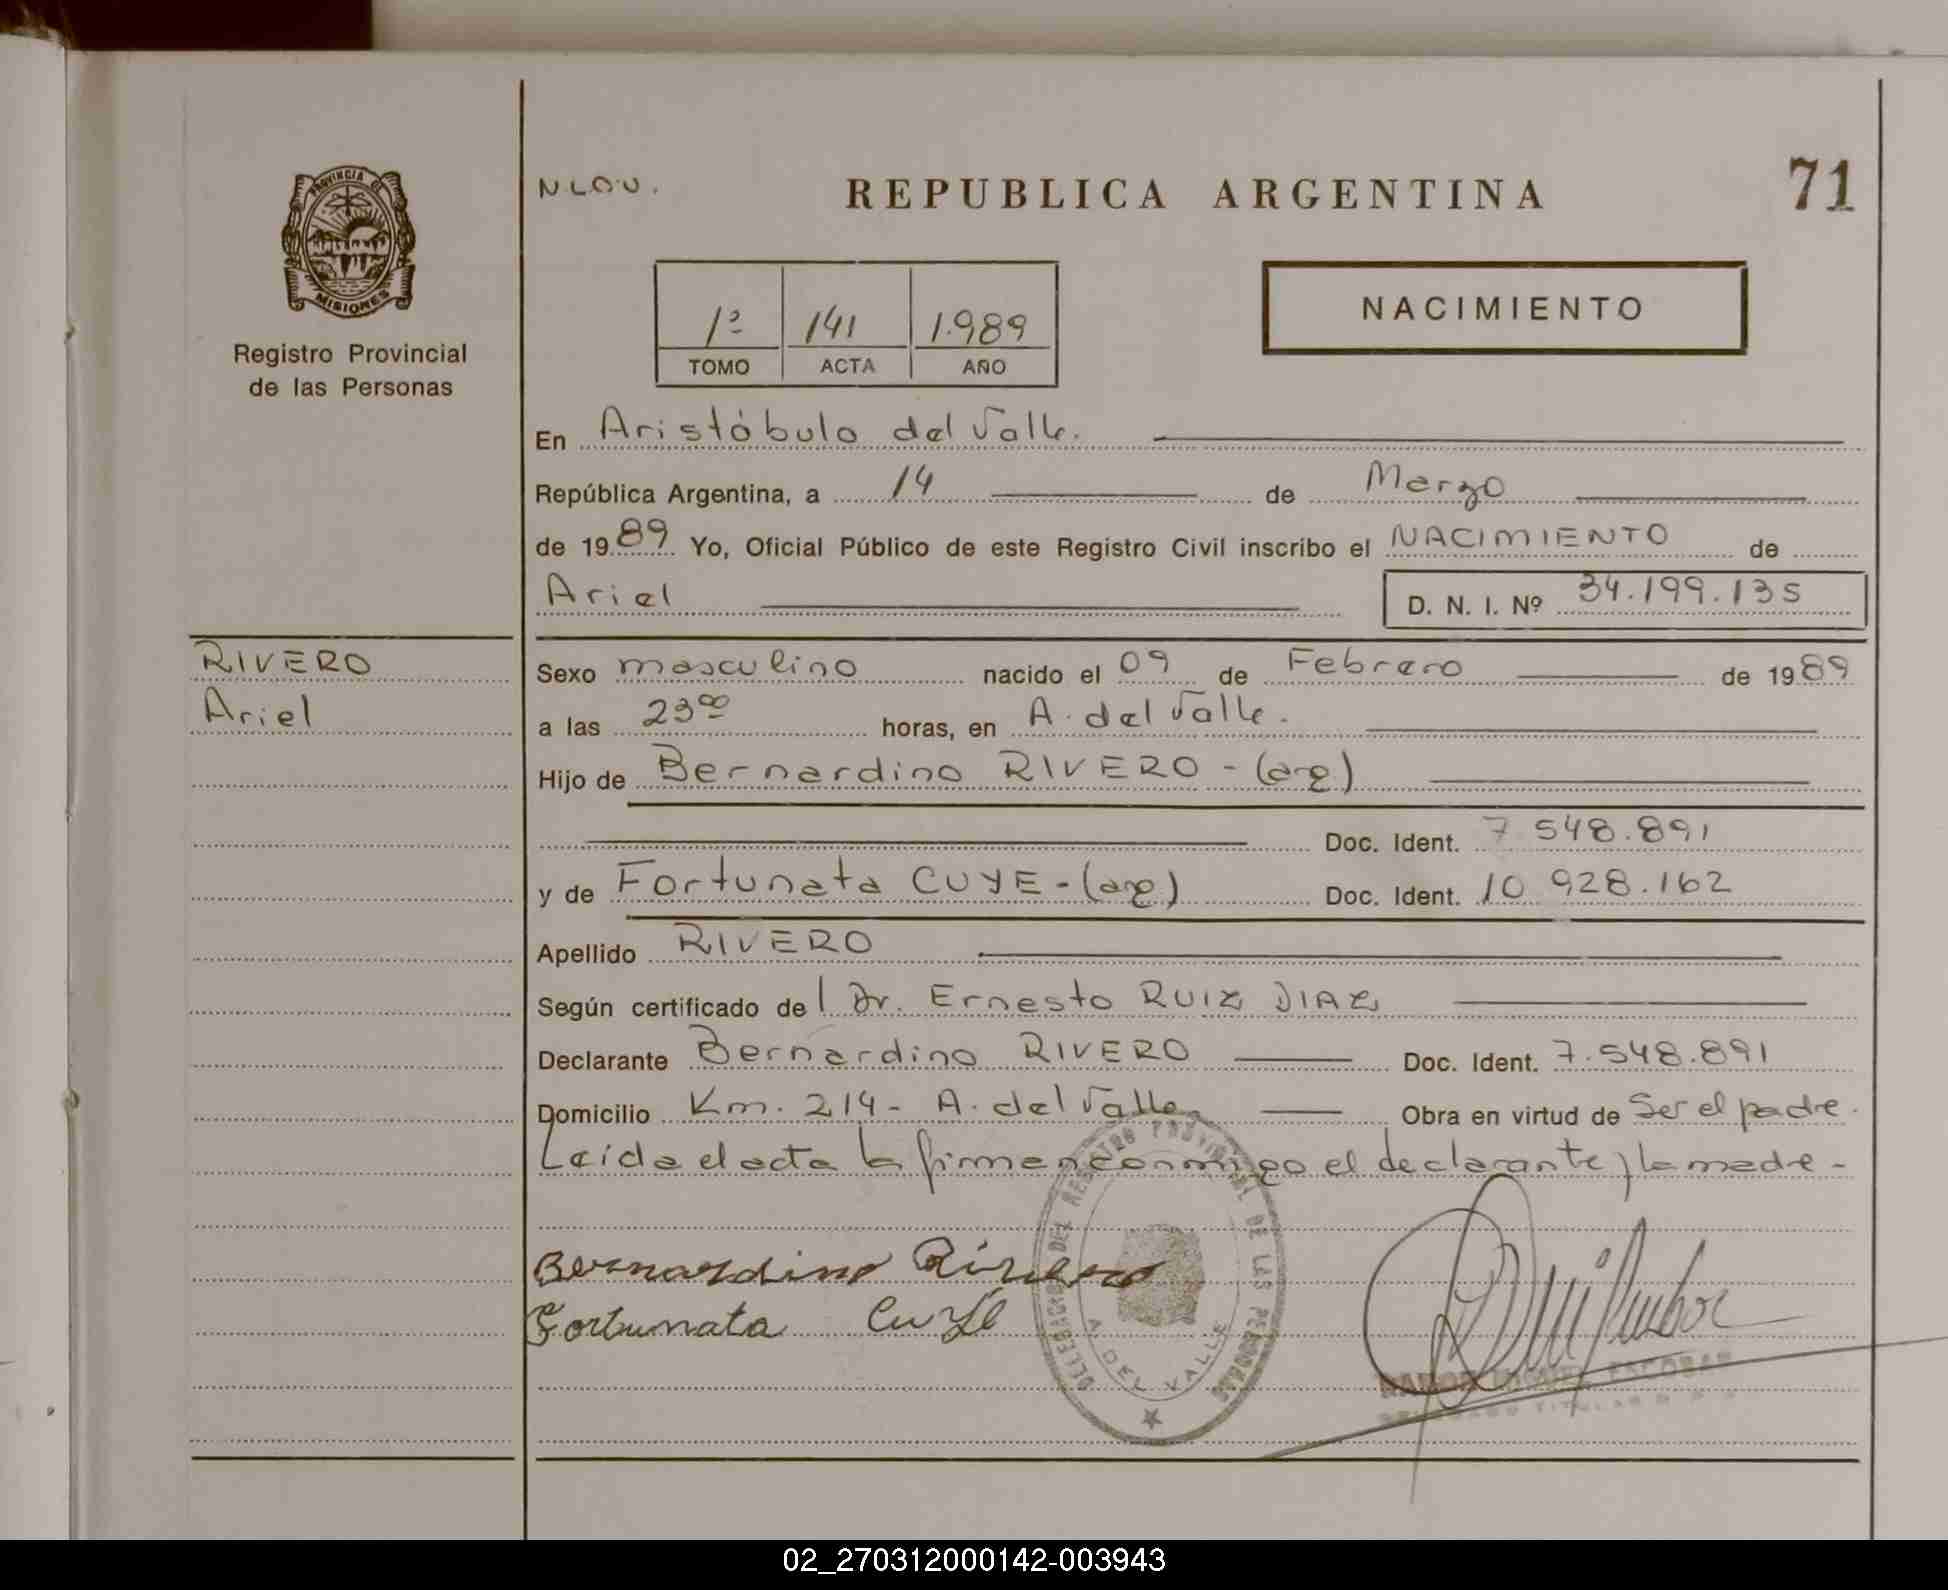 N.L.O.V.
REPUBLICA ARGENTINA
71
PROVINCIA DE
MISIONES
Registro Provincial
de las Personas
1º 141 1.989
TOMO ACTA AÑO
NACIMIENTO
En Aristóbulo del Valle.
República Argentina, a 14 de Marzo
de 1989 Yo, Oficial Público de este Registro Civil inscribo el NACIMIENTO de
Ariel D. N. I. Nº 34.199.135
RIVERO
Ariel
Sexo masculino nacido el 09 de Febrero de 1989
a las 23⁰⁰ horas, en A. del Valle.
Hijo de Bernardino RIVERO - (arg)
Doc. Ident. 7 548.891
y de Fortunata CUYE - (arg) Doc. Ident. 10 928.162
Apellido RIVERO
Según certificado de Dr. Ernesto RUIZ DIAZ
Declarante Bernardino RIVERO Doc. Ident. 7.548.891
Domicilio Km. 214 - A. del Valle Obra en virtud de Ser el padre.
Leida el acta la firman conmigo el declarante y la madre -
Bernardino Rivero
Fortunata Cuye
DELEGACION DEL REGISTRO PROVINCIAL DE LAS PERSONAS
A. DEL VALLE
MIGUEL ESCOBAR
TITULAR
02_270312000142-003943